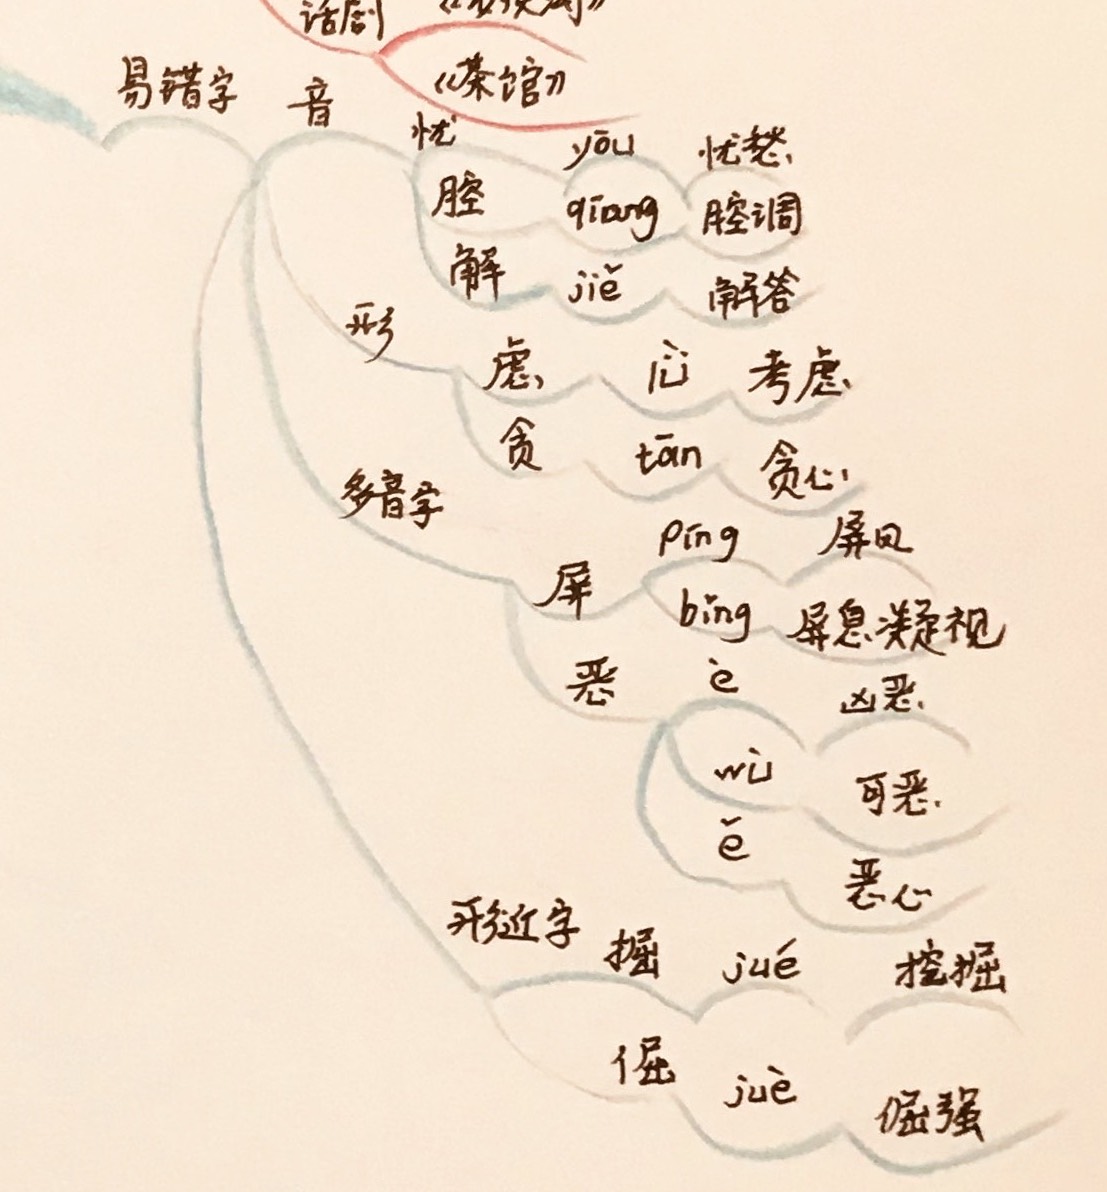 话剧
《茶馆》
易错字 音
忧 yōu 忧愁
腔 qiāng 腔调
解 jiě 解答
形
虑 lǜ 考虑
贪 tān 贪心
多音字
屏 píng 屏风
bǐng 屏息凝视
恶 è 凶恶
wù 可恶
ě 恶心
形近字 掘 jué 挖掘
倔 juè 倔强